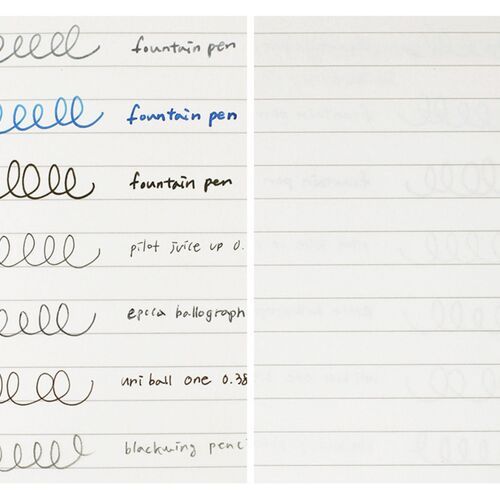 fountain pen
fountain pen
fountain pen
pilot juice up 0.
epcca ballograph
uni ball one 0.38
blackwing penci